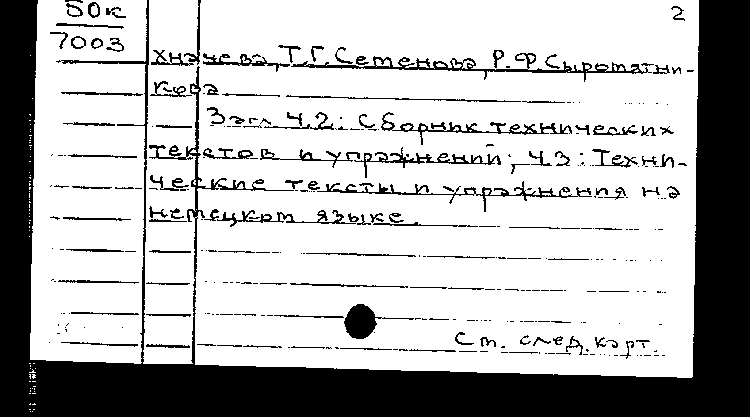 50к
7003
2
хначева, Т.Г. Семенова, Р.Ф. Сыромятни-
кова.
Загл. Ч.2: Сборник технических
текстов и упражнений; Ч.3: Техни-
ческие тексты и упражнения на
немецком языке.
См. след. карт.